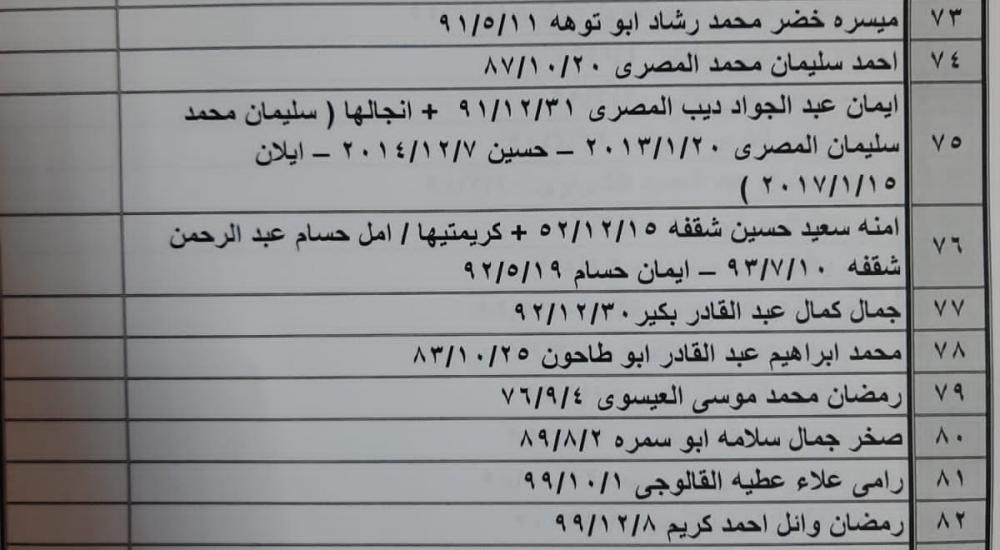 ٧٣ ميسره خضر محمد رشاد ابو توهه ٩١/٥/١١
٧٤ احمد سليمان محمد المصرى ٨٧/١٠/٢٠
٧٥ ايمان عبد الجواد ديب المصرى ٩١/١٢/٣١ + انجالها ( سليمان محمد
سليمان المصرى ٢٠١٣/١/٢٠ – حسين ٢٠١٤/١٢/٧ – ايلان
٢٠١٧/١/١٥ )
٧٦ امنه سعيد حسين شقفه ٥٢/١٢/١٥ + كريمتيها / امل حسام عبد الرحمن
شقفه ٩٣/٧/١٠ – ايمان حسام ٩٢/٥/١٩
٧٧ جمال كمال عبد القادر بكير ٩٢/١٢/٣٠
٧٨ محمد ابراهيم عبد القادر ابو طاحون ٨٣/١٠/٢٥
٧٩ رمضان محمد موسى العيسوى ٧٦/٩/٤
٨٠ صخر جمال سلامه ابو سمره ٨٩/٨/٢
٨١ رامى علاء عطيه القالوجى ٩٩/١٠/١
٨٢ رمضان وائل احمد كريم ٩٩/١٢/٨